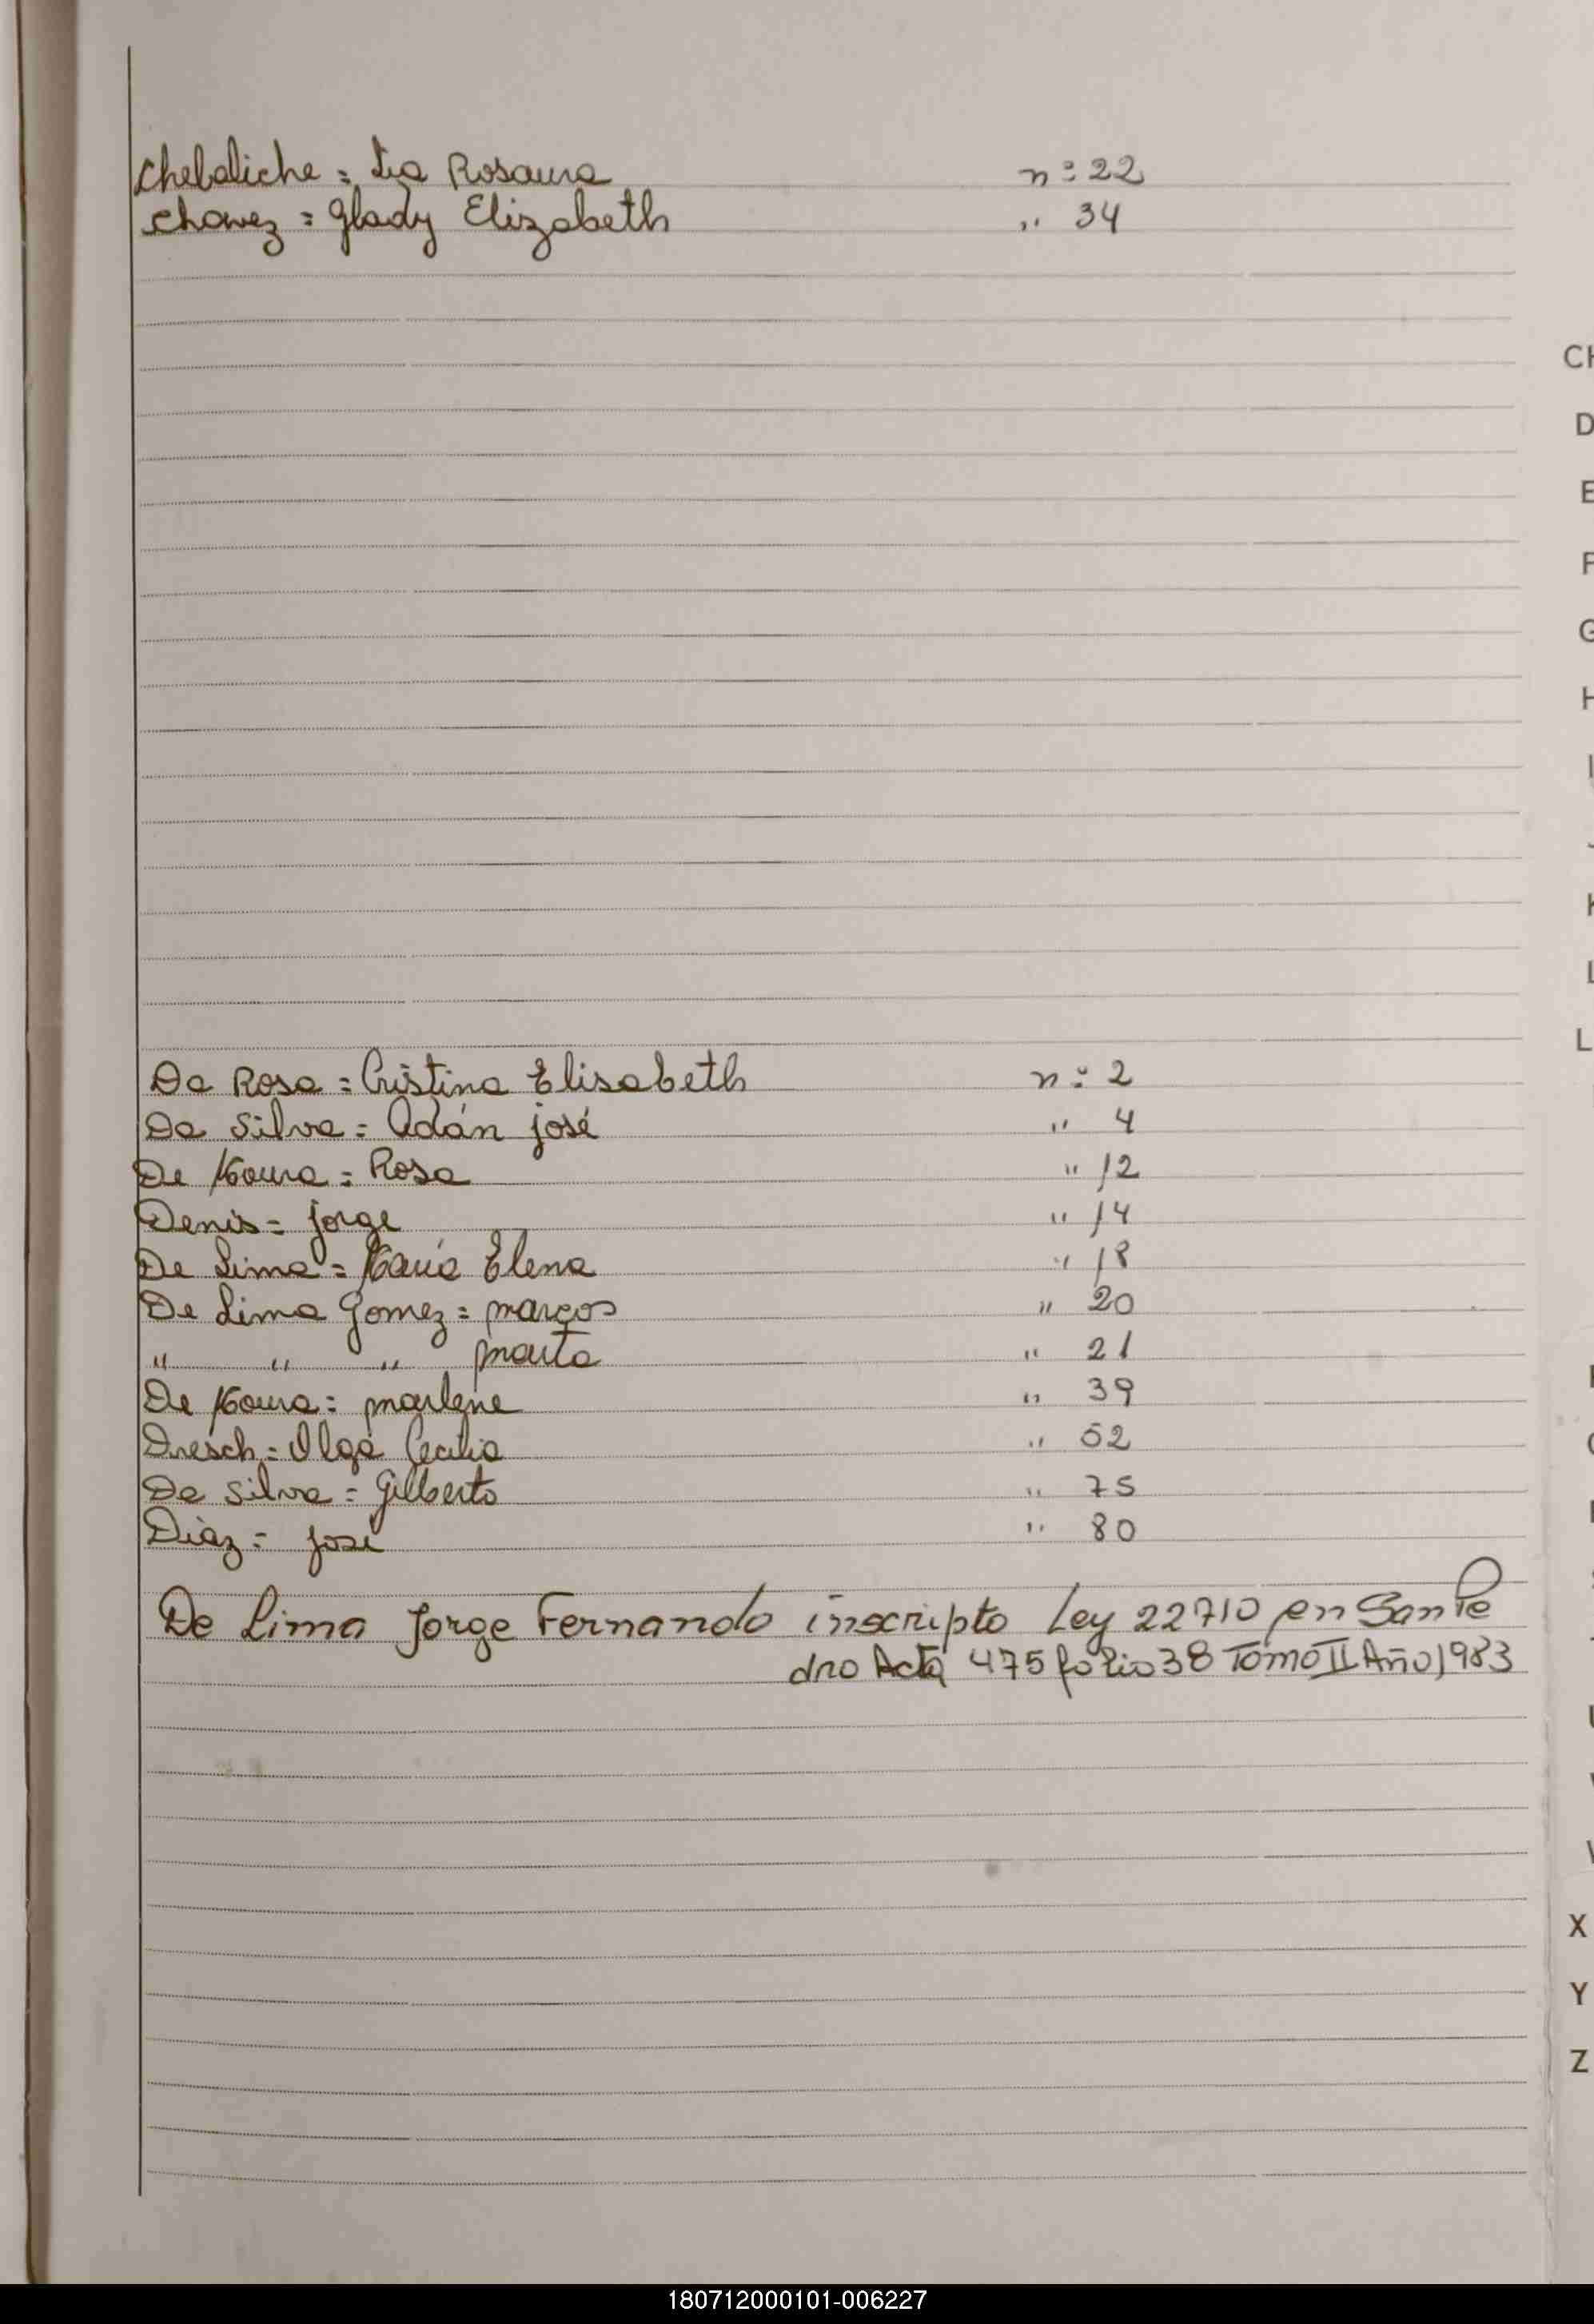 Chebaliche = Lia Rosaura n: 22
Chavez = Glady Elizabeth " 34
CH
D
E
F
G
H
I
J
K
L
L
Da Rosa = Cristina Elisabeth n: 2
Da Silva = Adán josé " 4
De Moura = Rosa " 12
Denis = jorge " 14
De Lima = María Elena " 18
De Lima Gomez = marcos " 20
" " " marta " 21
De Moura = marlene " 39
Dresch = Olga Cecilia " 52
Da Silva = Gilberto " 75
Diaz = josé " 80
De Lima Jorge Fernando inscripto Ley 22710 en San Pe
dro Acta 475 folio 38 Tomo II Año 1983
X
Y
Z
180712000101-006227